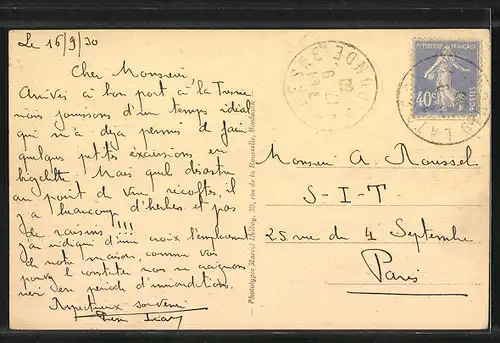 Le 16/9/30
Cher Monsieur,
Arrivés à bon port à la Tresne
nous jouissons d'un temps idéal
qui m'a déja permis de faire
quelques petites excursions en
bicyclette. Mais quel désastre
au point de vue récoltes, il
y a beaucoup d'herbes et pas
de raisins !!!
J'ai indiqué d'une croix l'emplacement
de notre maison, comme vous
pouvez le constater nous ne craignons
rien en période d'inondations.
Respectueux souvenir
Monsieur A. Roussel
S-I-T
25 rue du 4 Septembre
Paris
Phototypie Marcel Delboy, rue de la
RÉPUBLIQUE FRANÇAISE
40c
POSTES
GIRONDE